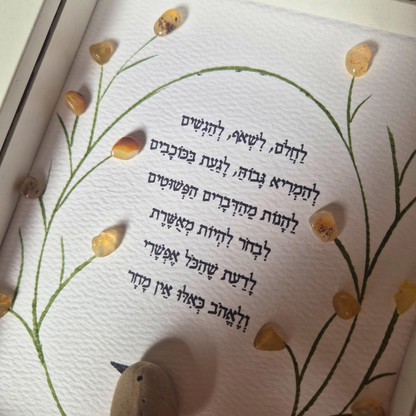 לַחְלֹם, לִשְׁאֹף, לְהַגְשִׁים
לְהַמְרִיא גָּבוֹהַּ, לָגַעַת בַּכּוֹכָבִים
לֵהָנוֹת מֵהַדְּבָרִים הַפְּשׁוּטִים
לִבְחֹר לִהְיוֹת מְאֻשֶּׁרֶת
לָדַעַת שֶׁהַכֹּל אֶפְשָׁרִי
וְלֶאֱהֹב כְּאִלּוּ אֵין מָחָר